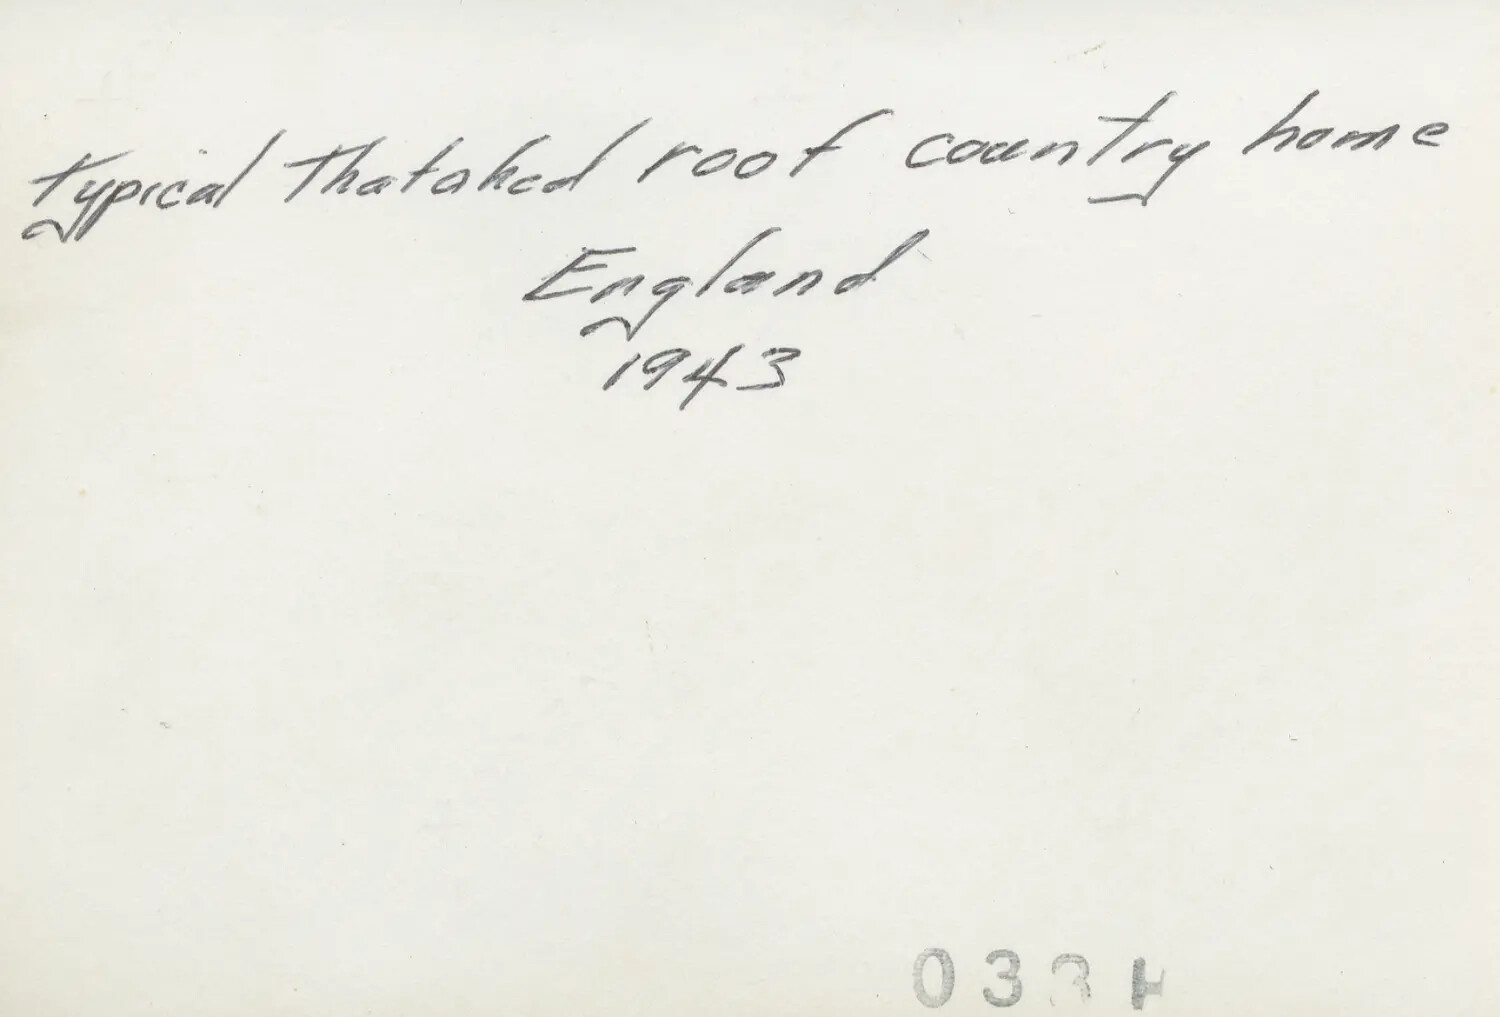 typical Thatahed roof country home
England
1943
033